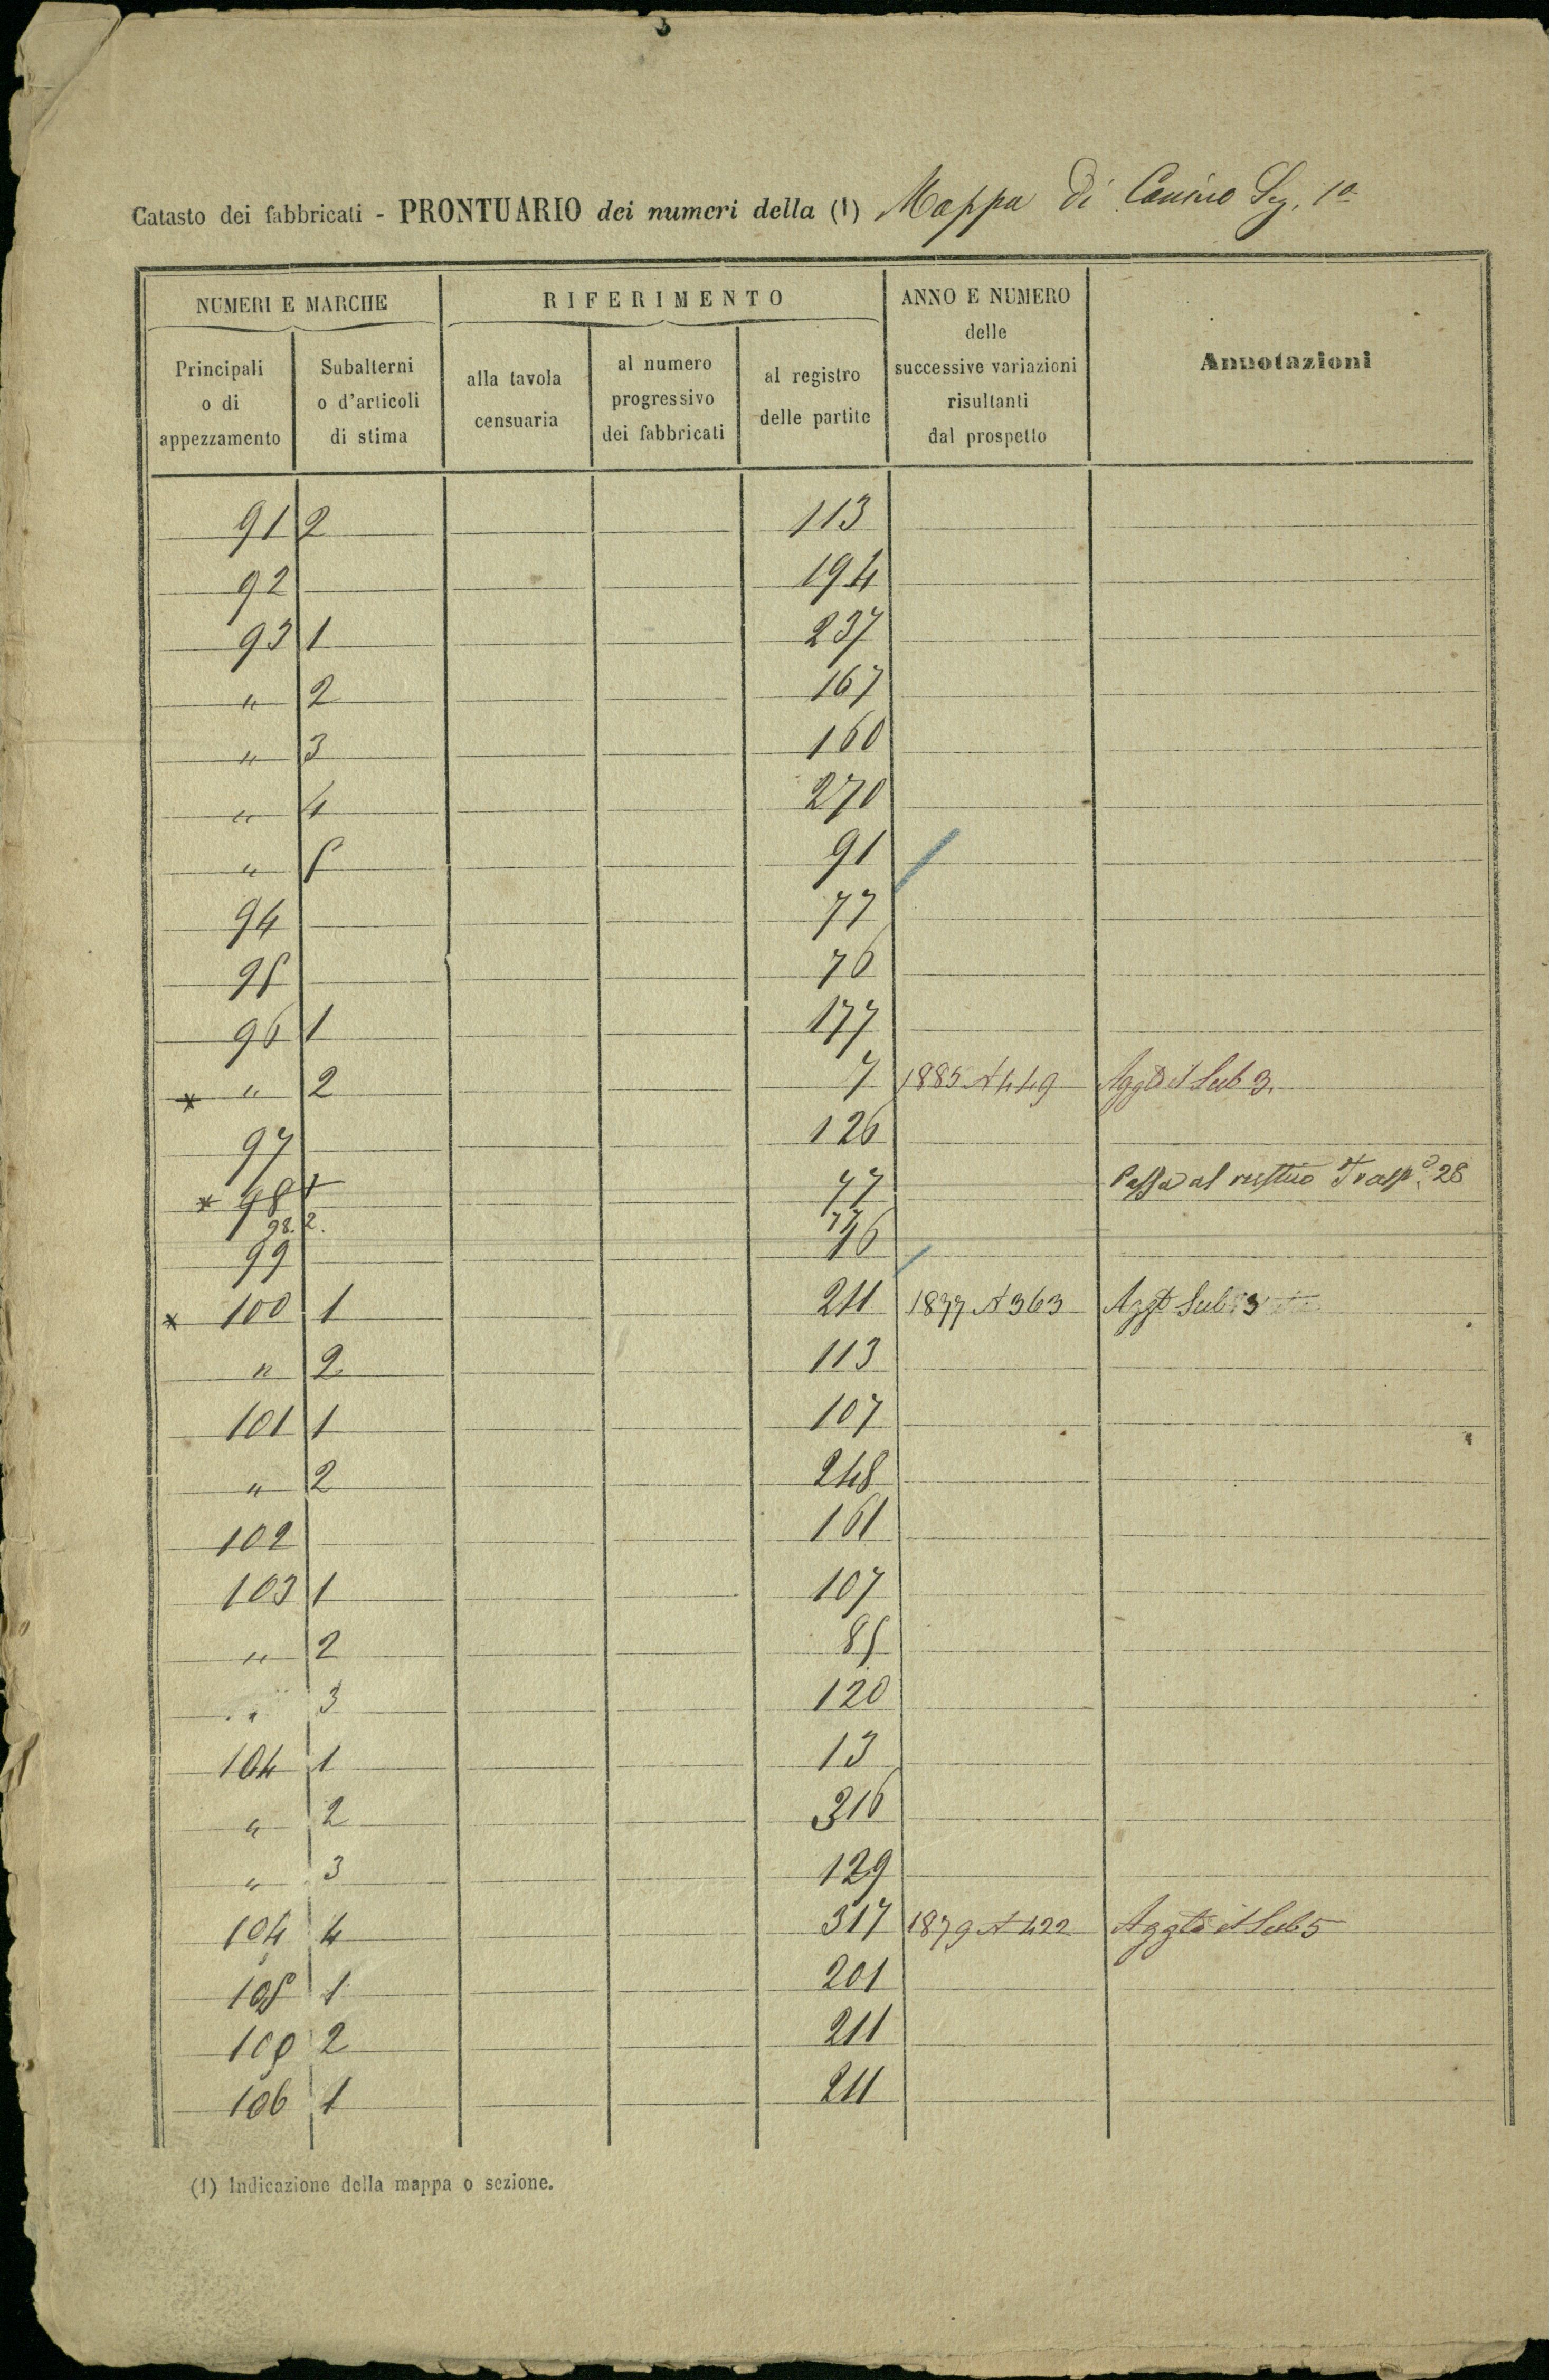 Catasto dei fabbricati - PRONTUARIO dei numeri della (1) Mappa di Canino Sez. 1a
NUMERI E MARCHE
Principali o di appezzamento
Subalterni o d'articoli di stima
RIFERIMENTO
alla tavola censuaria
al numero progressivo dei fabbricati
al registro delle partite
ANNO E NUMERO delle successive variazioni risultanti dal prospetto
Annotazioni
91 2 113
92 194
93 1 237
" 2 167
" 3 160
" 4 270
" 5 91
94 77
95 76
96 1 177
* " 2 7 1885 N 449 Aggto il Sub 3.
97 126
* 98 1 77 Passa al rustico Trasp. 28
98. 2. 77
99 46
* 100 1 211 1877 N 363 Aggto Sub 3
" 2 113
101 1 107
" 2 248
102 161
103 1 107
" 2 85
" 3 120
104 1 13
" 2 316
" 3 129
104 4 317 1879 N 422 Aggto il Sub 5
105 1 201
105 2 211
106 1 211
(1) Indicazione della mappa o sezione.